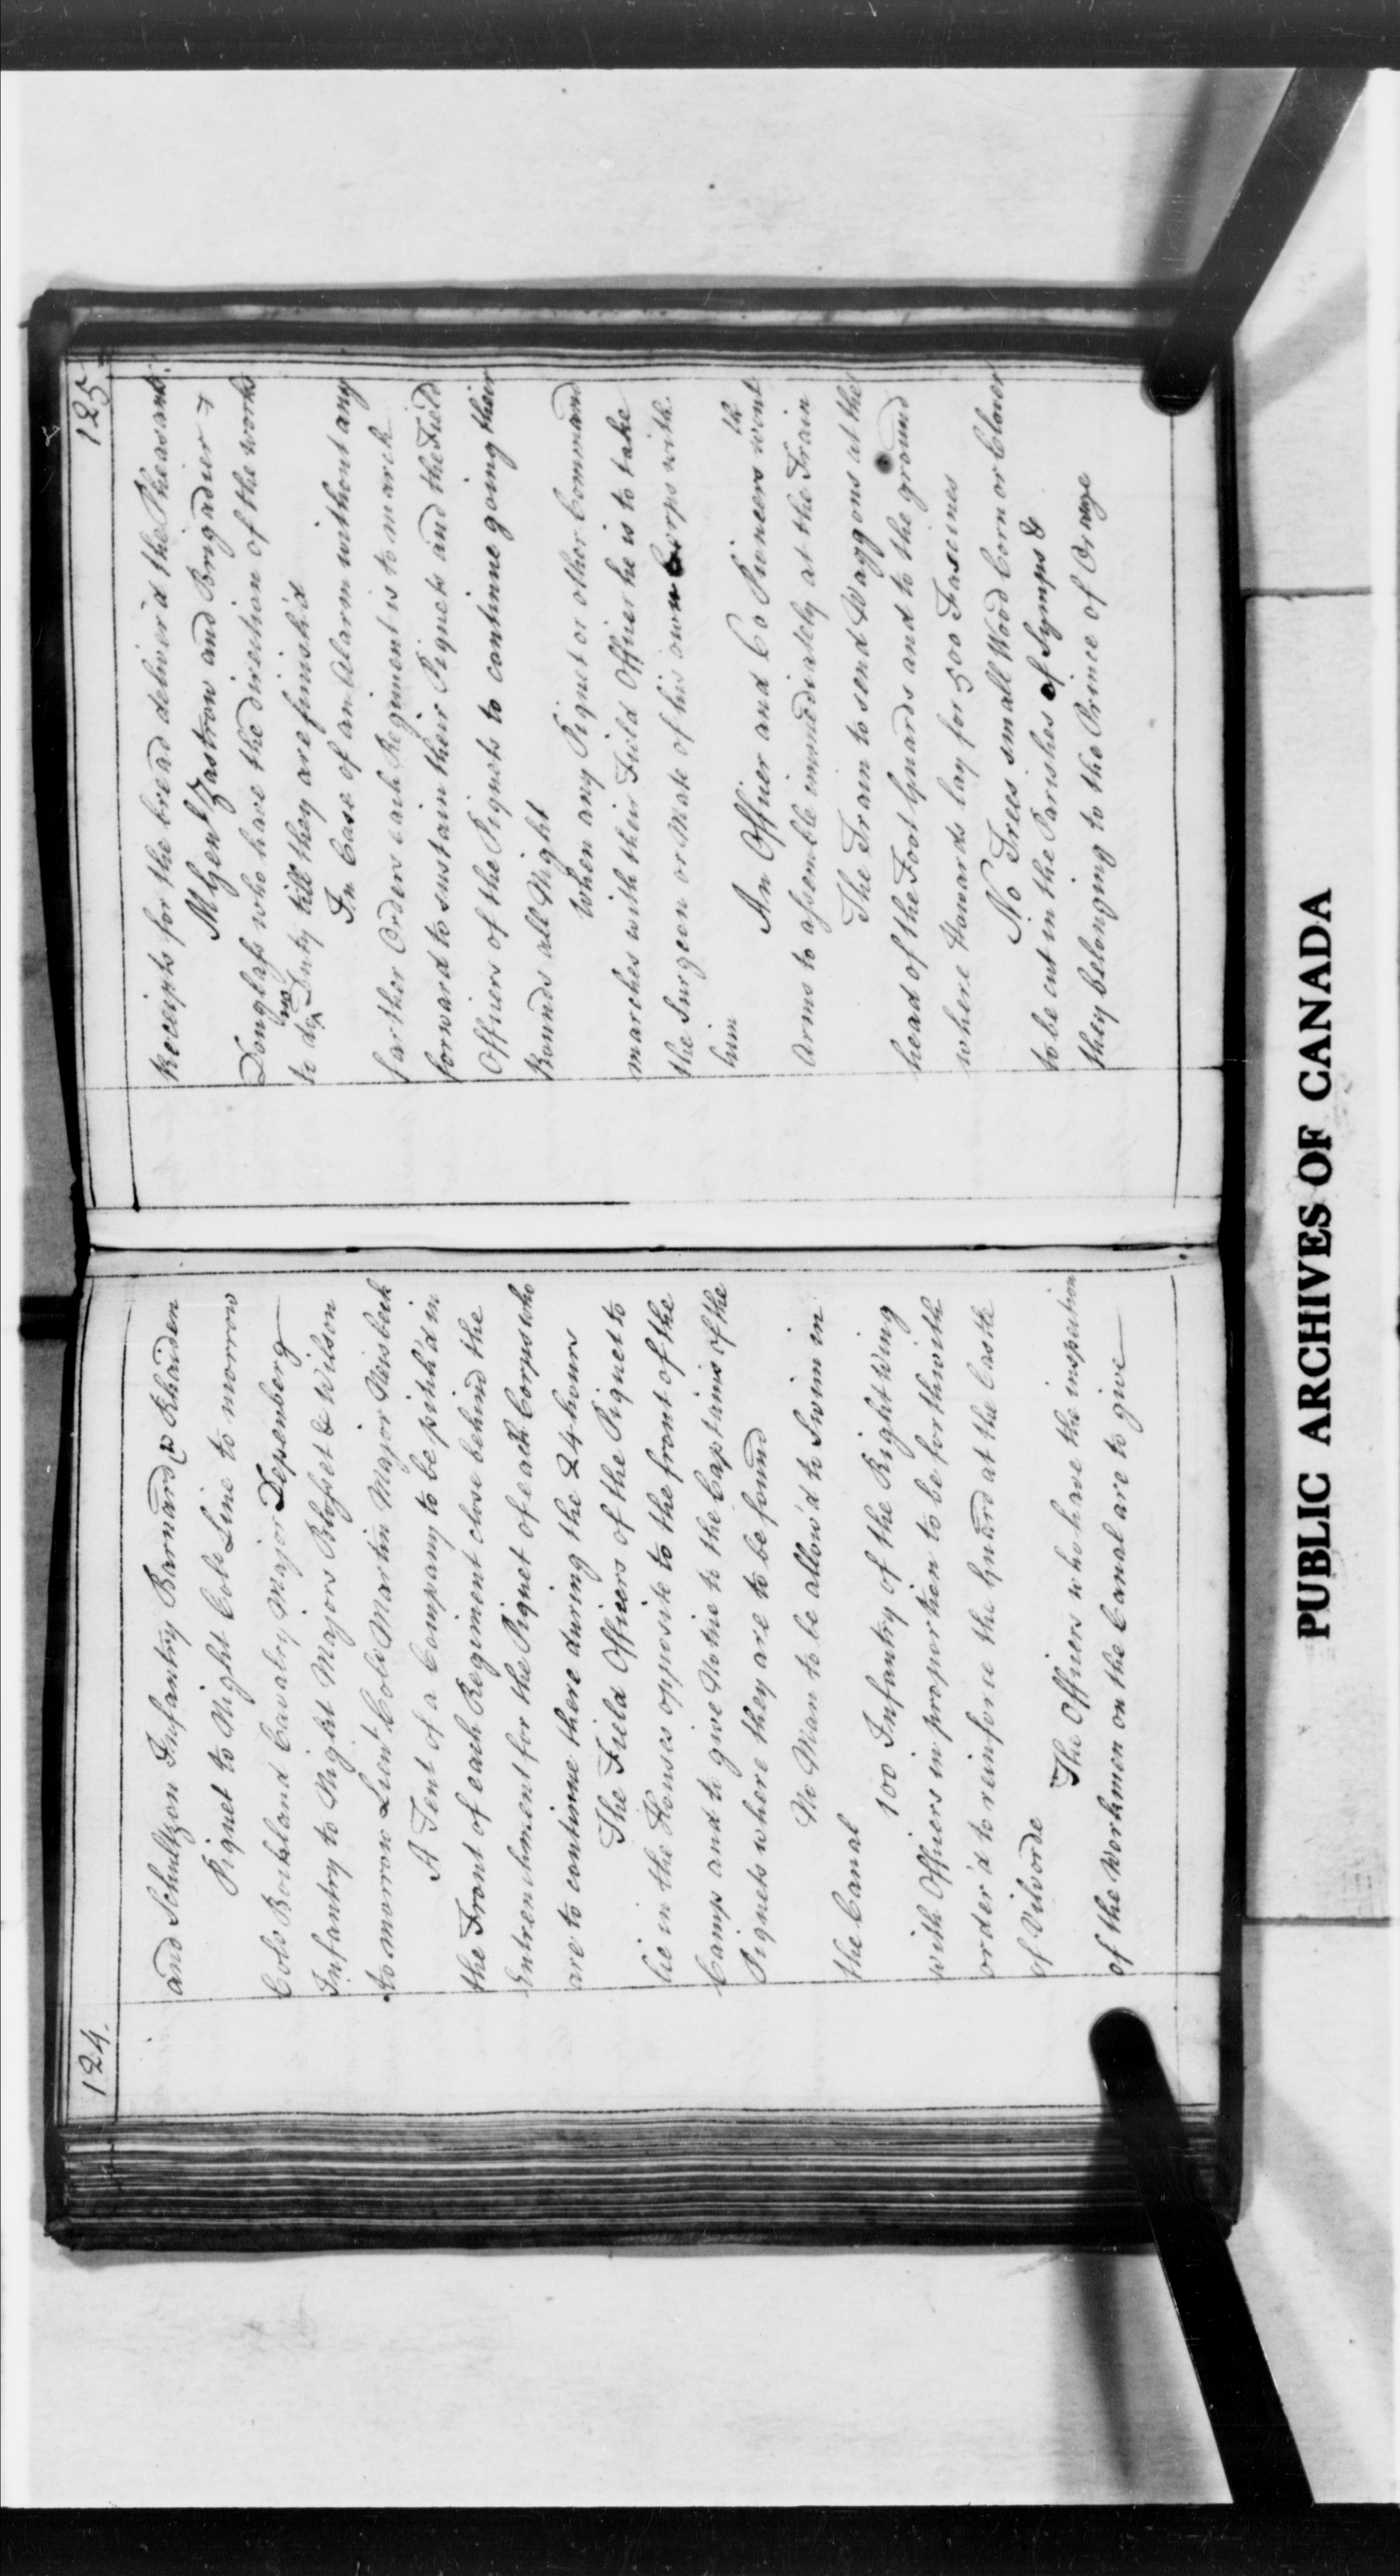 124.
and Schultzen Infantry Barnard & Rhaden
Piquet to Night Colo Line to morrow
Colo Bockland Cavalry Major Depenberg
Infantry to Night Majors Blosset & Wilson
to morrow Lieut Colo Martin Major Reisbeck
A Tent of a Company to be pitch'd in
the Front of each Regiment close behind the
Entrenchment for the Piquet of each Corps who
are to continue there during the 24 hours
The Field Officers of the Piquet to
lie in the Houses opposite to the front of the
Camp and to give Notice to the Captains of the
Piquets where they are to be found
No Man to be allow'd to Swim in
the Canal
100 Infantry of the Right Wing
with Officers in proportion to be forthwith
order'd to reinforce the Guard at the Castle
of Vilvorde
The Officers who have the inspection
of the Workmen on the Canal are to give
125
Receipts for the bread deliver'd the Pheasants.
M Genl Zastrow and Brigadier
Douglass who have the direction of the works
to do no Duty till they are finish'd
In Case of an Alarm without any
farther Orders each Regiment is to march
forward to sustain their Piquets and the Field
Officers of the Piquets to continue going their
Rounds all Night
When any Piquet or other Command
marches with their Field Officer he is to take
the Surgeon or Mate of his own Corps with
him
An Officer and 60 Pioneers wont th
Arms to assemble immediately at the Train
The Train to send Waggons at the
head of the Foot Guards and to the ground
where Howards lay for 500 Fascines
No Trees small Wood Corn or Clover
to be cut in the Parishes of Symps &
they belonging to the Prince of Orange
PUBLIC ARCHIVES OF CANADA